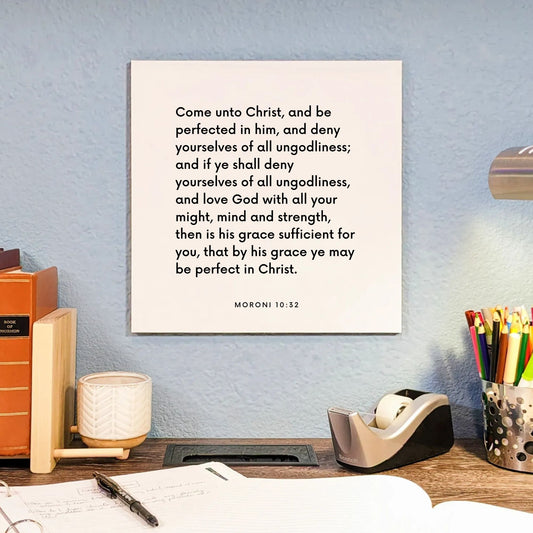 Come unto Christ, and be
perfected in him, and deny
yourselves of all ungodliness;
and if ye shall deny
yourselves of all ungodliness,
and love God with all your
might, mind and strength,
then is his grace sufficient for
you, that by his grace ye may
be perfect in Christ.
MORONI 10:32
BOOK OF
MORMON